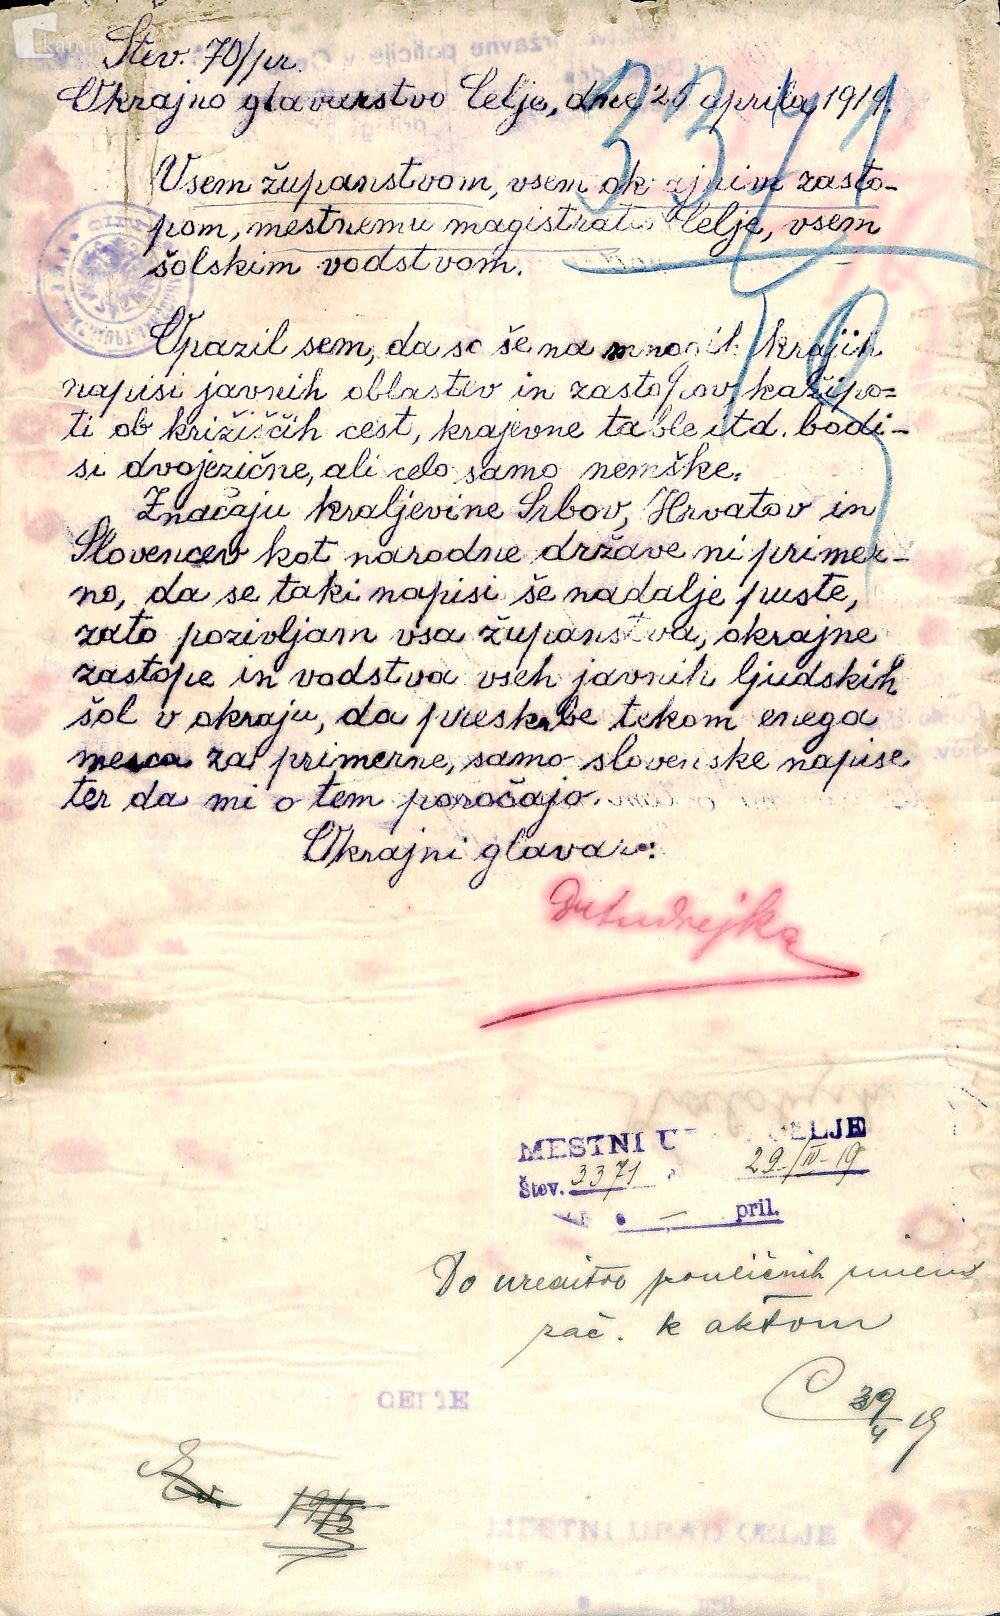 kamra
Štev. 70/pr.
Okrajno glavarstvo Celje, dne 25 aprila 1919.
3371
19
Vsem županstvom, vsem okrajnim zasto-
pom, mestnemu magistratu Celje, vsem
šolskim vodstvom.
Opazil sem, da so še na mnogih krajih
napisi javnih oblastev in zastopov, kažipo=
ti ob križiščih cest, krajevne table itd. bodi-
si dvojezične, ali celo samo nemške.
Značaju kraljevine Srbov, Hrvatov in
Slovencev kot narodne države ni primer-
no, da se taki napisi še nadalje puste,
zato pozivljam vsa županstva, okrajne
zastope in vodstva vseh javnih ljudskih
šol v okraju, da preskrbe tekom enega
mesca za primerne, samo slovenske napise
ter da mi o tem poročajo.
Okrajni glavar:
MESTNI URAD CELJE
Štev. 3371 29./IV-19
— pril.
Do ureditve pouličnih imen
zač. k aktom
19
CELJE
MESTNI URAD CELJE